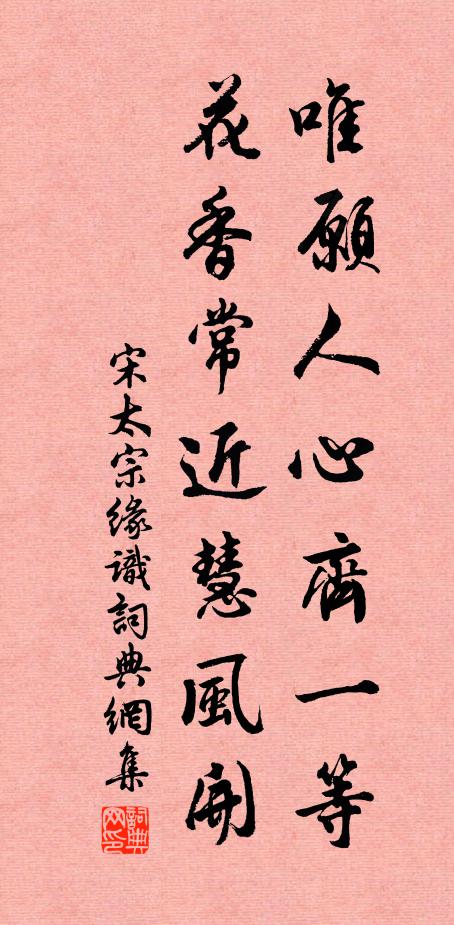 唯願人心齊一等
花香常近慧風開
宋太宗緣識詞典網集
詞典网印